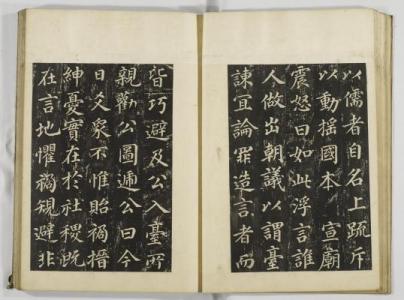 以儒者自名上疏斥
以動搖國本 宣廟
震怒曰如此浮言誰
人做出朝議以謂臺
諫宜論罪造言者而
皆巧避及公入臺所
親勸公圖遞公曰今
日爻象不惟貽禍搢
紳憂實在於社稷旣
在言地懼禍規避非